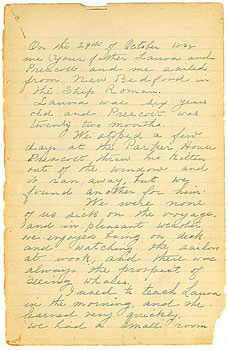 On the 29th of October 1892
me your father Laura and
Prescott and me sailed
from New Bedford in
the Ship Roman.
Laura was six years
old and Prescott was
twenty two months
We stoped a few
days at the Parker House
Prescott threw his kitten
out of the window and
it ran away but we
found another for him.
We were none
of us sick on the voyage,
and in pleasant weather
we enjoyed being on deck
and watching the sailors
at work, and there was
always the prospect of
seeing whales.
I used to teach Laura
in the morning, and she
learned very quickly,
we had a small room